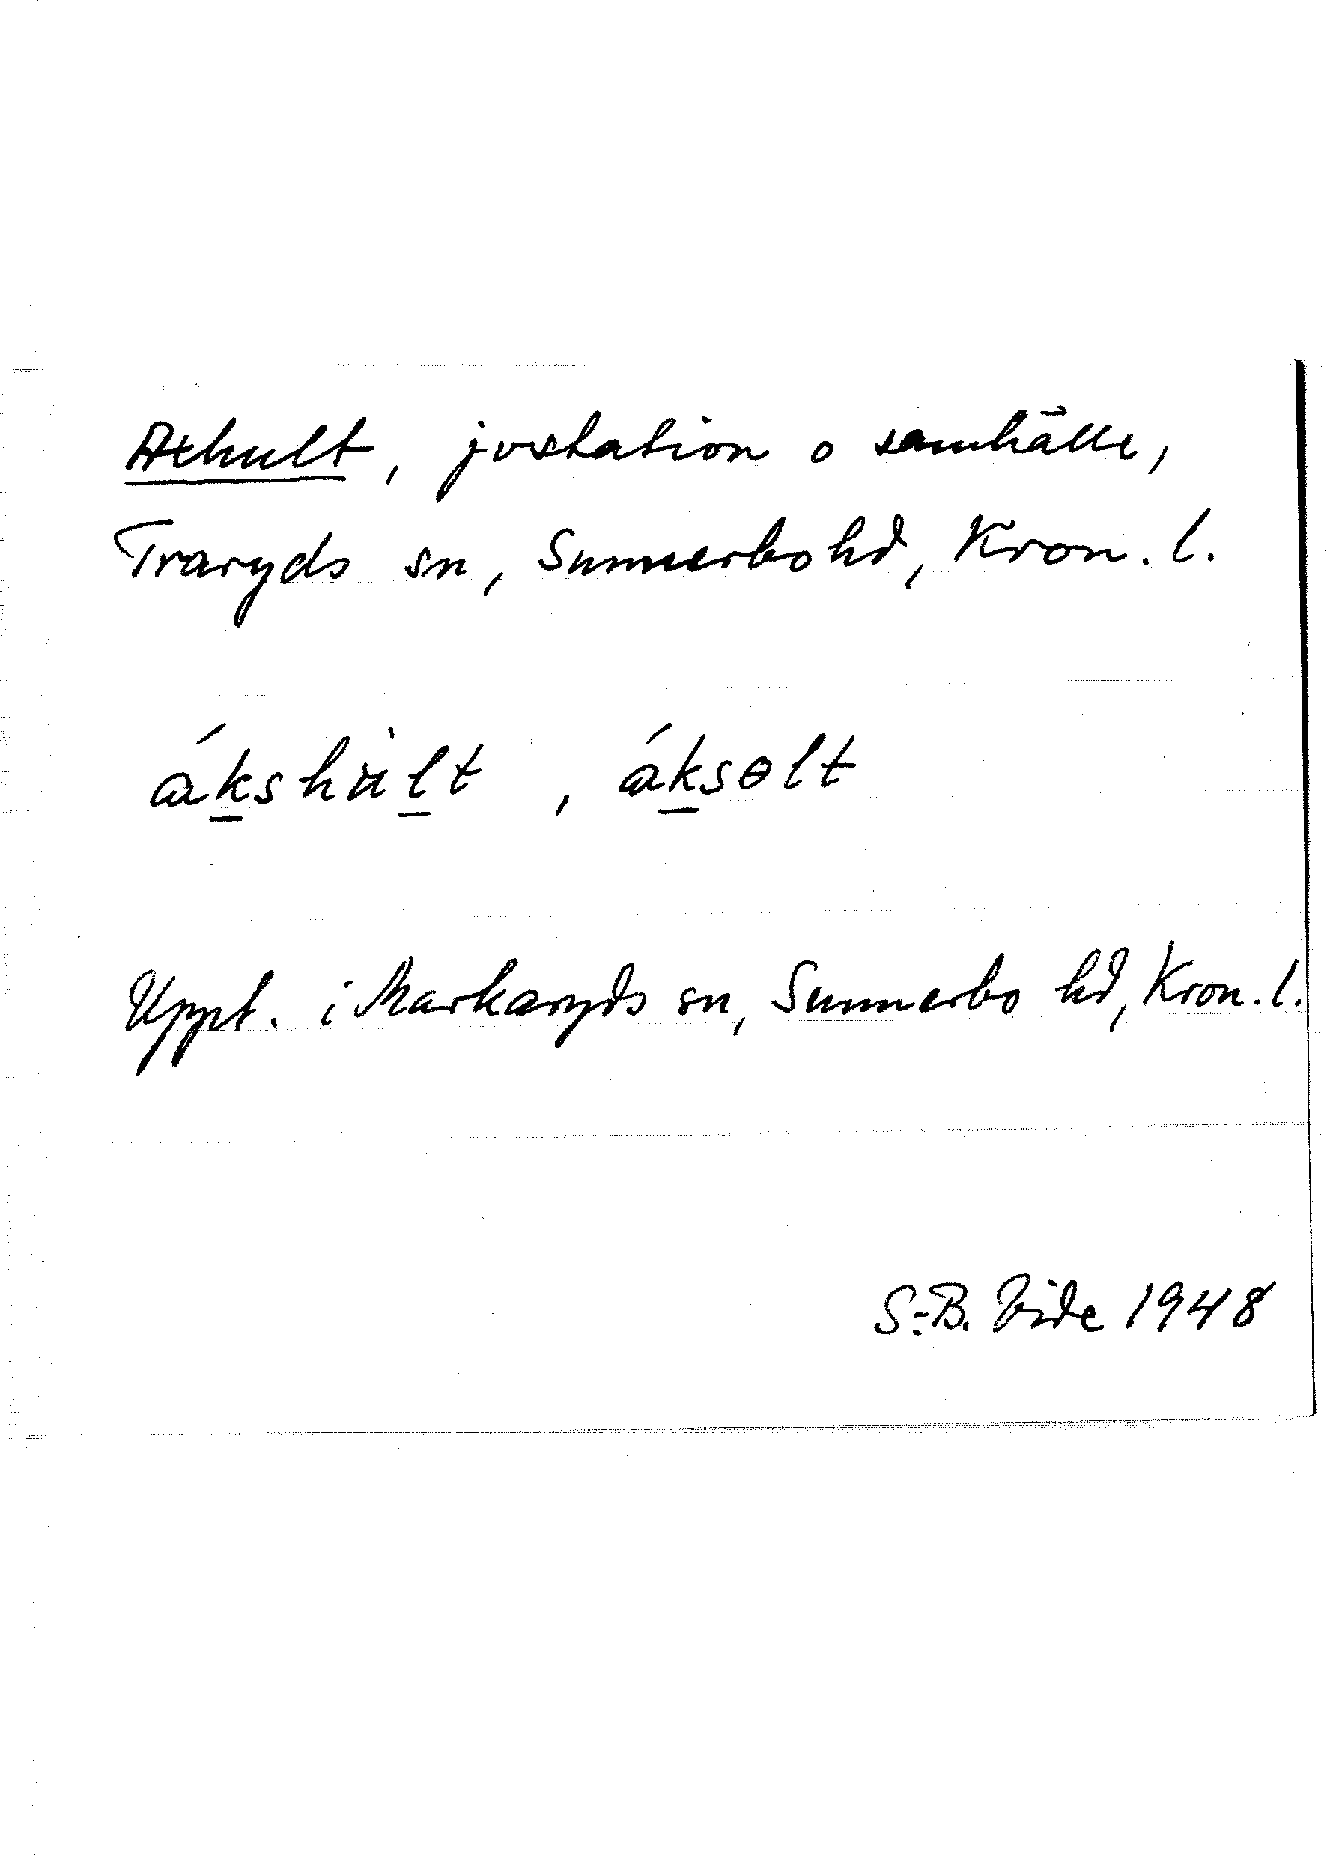 Axhult, jvstation o samhälle,
Traryds sn, Sunnerbo hd, Kron. l.
ákshùlt, áksɵlt
Uppt. i Markaryds sn, Sunnerbo hd, Kron. l.
S.-B. Vide 1948